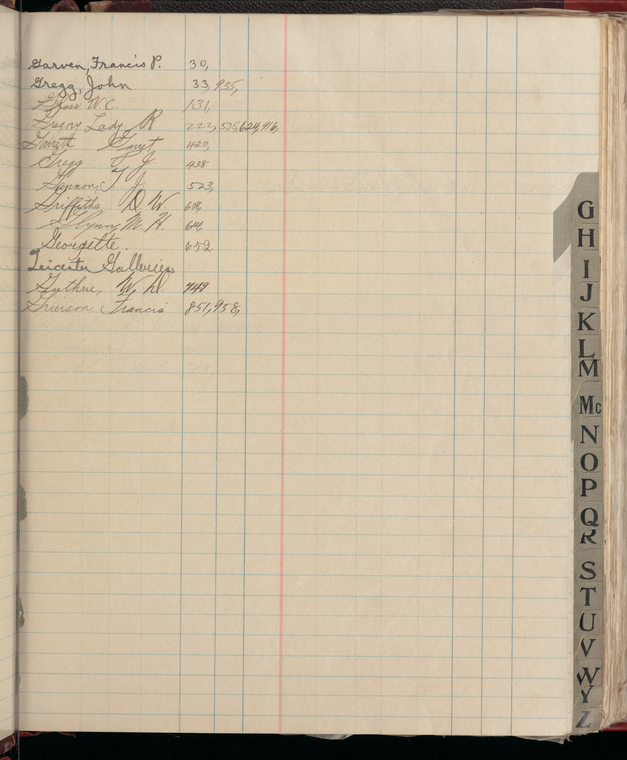 Garven, Francis P. 30,
Gregg, John 33, 935,
W.C. 131,
Lady 222, 535, 624, 916,
420,
Gregg 438
Gannon, T. J. 523,
Griffiths D. W. 608,
Glynn, M. H. 644,
Georgette. 652
Leicester Galleries
Guthrie, W. D. 749
Grierson Francis 851, 958,
G
H
I
J
K
L
M
Mc
N
O
P
Q
R
S
T
U
V
W
Y
Z